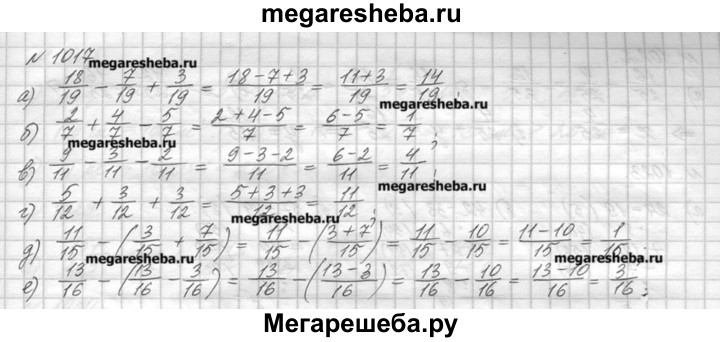 megaresheba.ru
№ 1017
megaresheba.ru
а) 18/19 - 7/19 + 3/19 = (18-7+3)/19 = (11+3)/19 = 14/19;
megaresheba.ru
б) 2/7 + 4/7 - 5/7 = (2+4-5)/7 = (6-5)/7 = 1/7;
megaresheba.ru
в) 9/11 - 3/11 - 2/11 = (9-3-2)/11 = (6-2)/11 = 4/11;
megaresheba.ru
г) 5/12 + 3/12 + 3/12 = (5+3+3)/12 = 11/12;
megaresheba.ru
д) 11/15 - (3/15 + 7/15) = 11/15 - ((3+7)/15) = 11/15 - 10/15 = (11-10)/15 = 1/15;
megaresheba.ru
megaresheba.ru
е) 13/16 - (13/16 - 3/16) = 13/16 - ((13-3)/16) = 13/16 - 10/16 = (13-10)/16 = 3/16;
Мегарешеба.ру